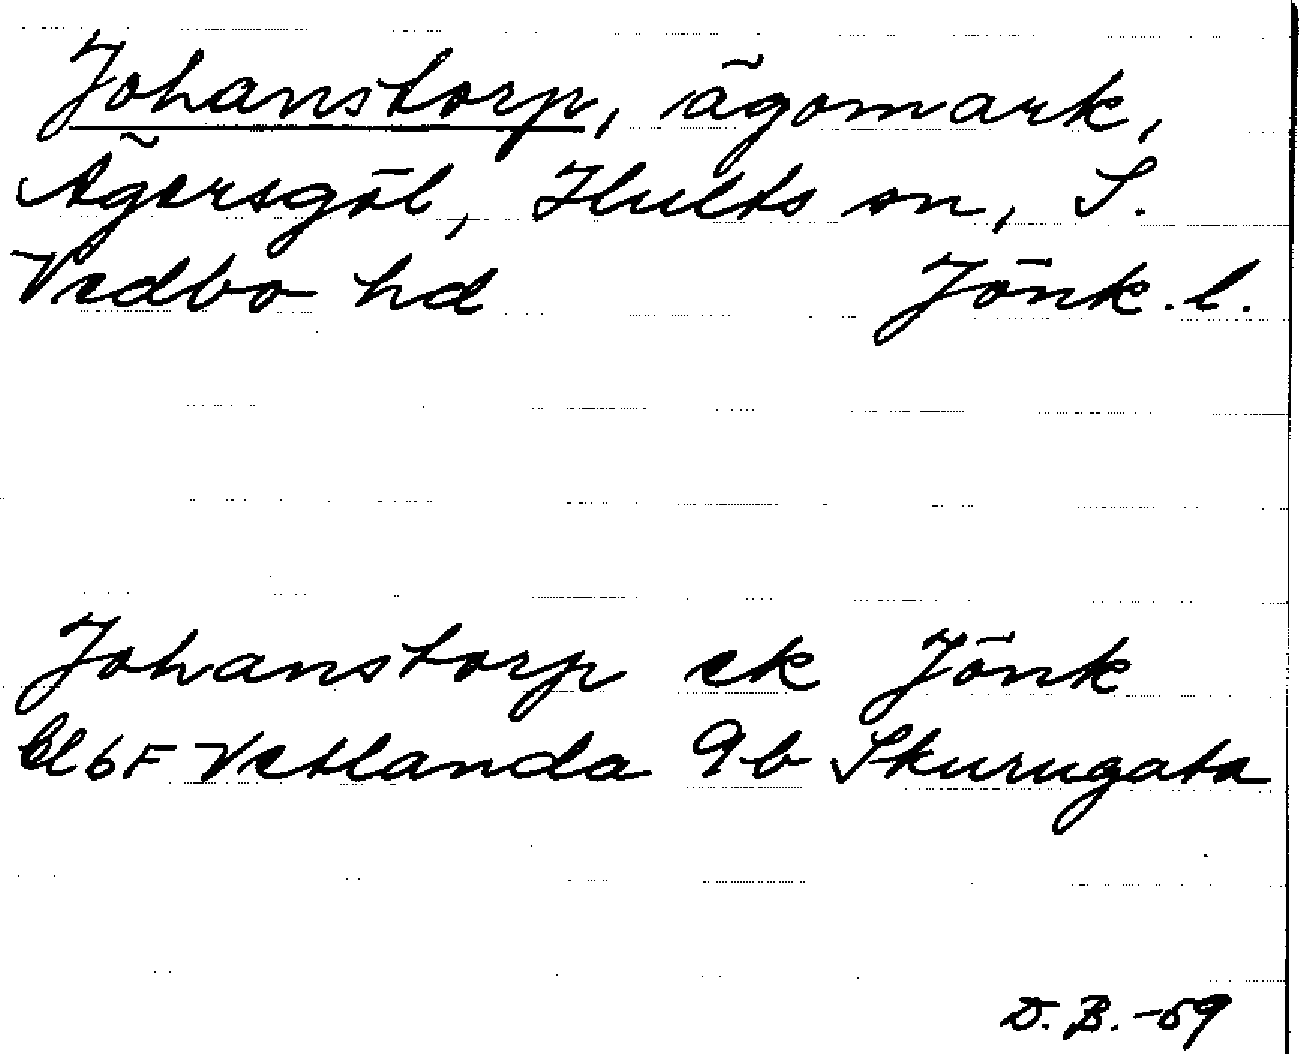 Johanstorp, ägomark,
Ägersgöl, Hults sn, S.
Vedbo hd Jönk. l.
Johanstorp ek Jönk
Bl 6F Vetlanda 9b Skurugata
D. B. -69